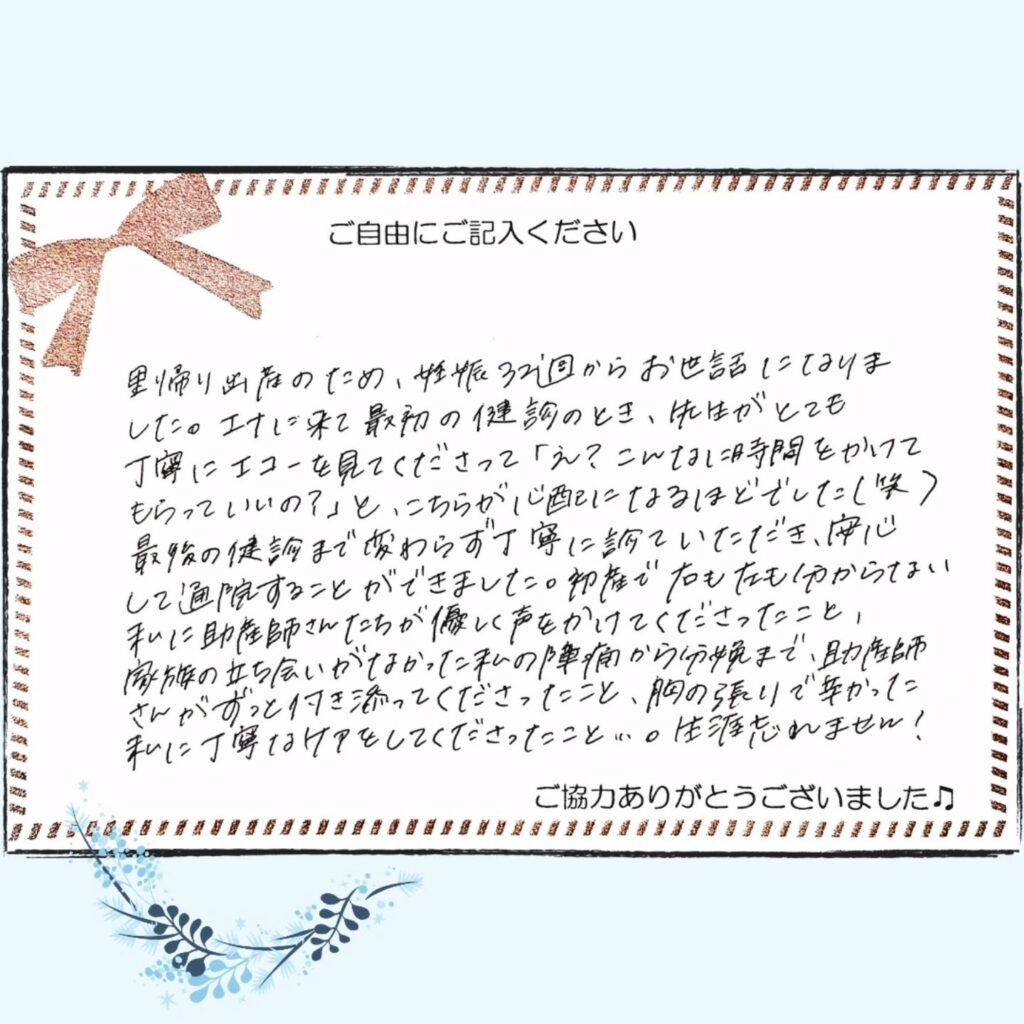 ご自由にご記入ください
里帰り出産のため、妊娠32週からお世話になりま
した。エナに来て最初の健診のとき、先生がとても
丁寧にエコーを見てくださって「え？こんなに時間をかけて
もらっていいの？」と、こちらが心配になるほどでした(笑)
最後の健診まで変わらず丁寧に診ていただき、安心
して通院することができました。初産で右も左も分からない
私に助産師さんたちが優しく声をかけてくださったこと、
家族の立ち会いがなかった私の陣痛から分娩まで、助産師
さんがずっと付き添ってくださったこと、胸の張りで辛かった
私に丁寧なケアをしてくださったこと…。生涯忘れません！
ご協力ありがとうございました♫